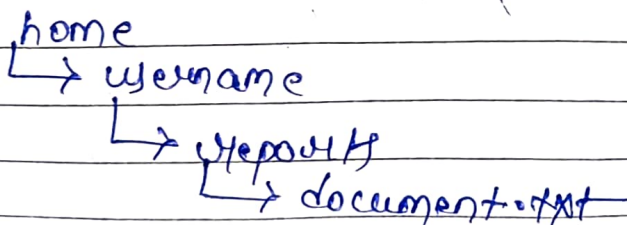 home
username
reports
document.txt